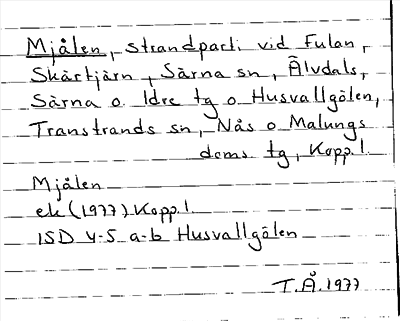 Mjålen, strandparti vid Fulan,
Skärtjärn, Särna sn, Älvdals,
Särna o. Idre tg o Husvallgölen,
Transtrands sn, Nås o Malungs
doms tg, Kopp. l.
Mjålen
ek (1977) Kopp. l.
ISD 4-5 a-b Husvallgölen
T.Å. 1977